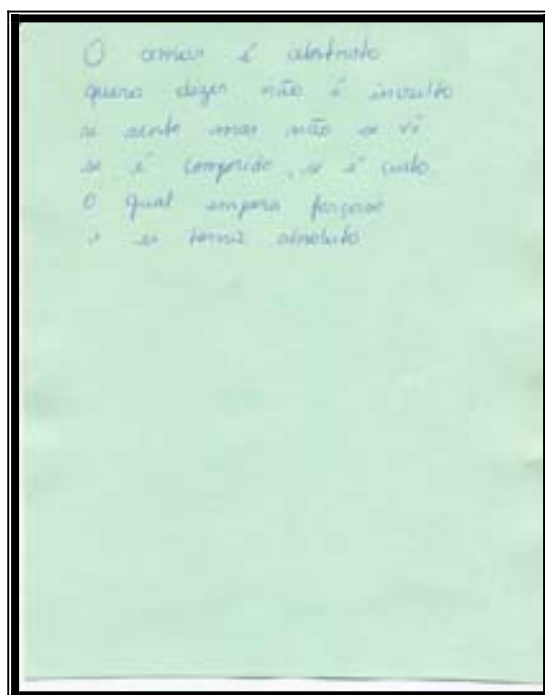 O amar é abstrato
quero dizer não é invulto
se sente mas não se vê
se é comprido, se é curto
O qual impera forçoso
e se torna absoluto